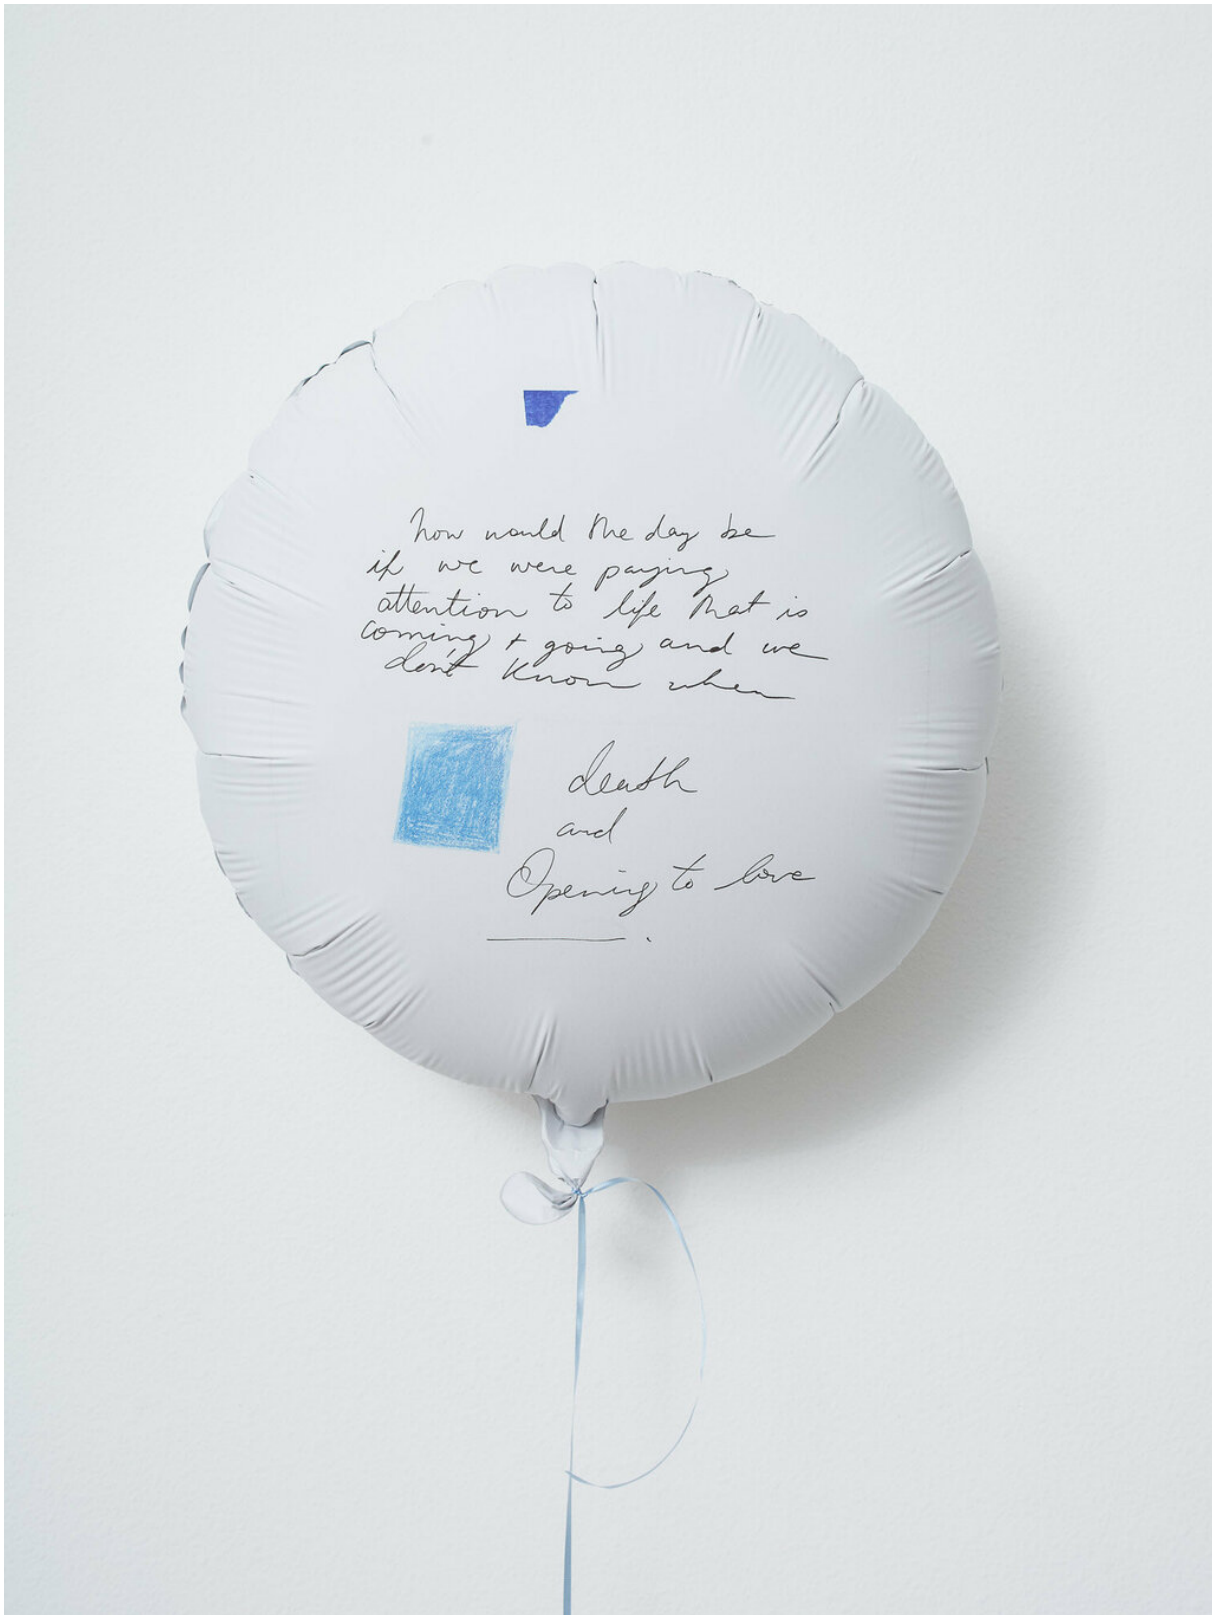 how would the day be
if we were paying
attention to life that is
coming + going and we
don't know when
death
and
Opening to love